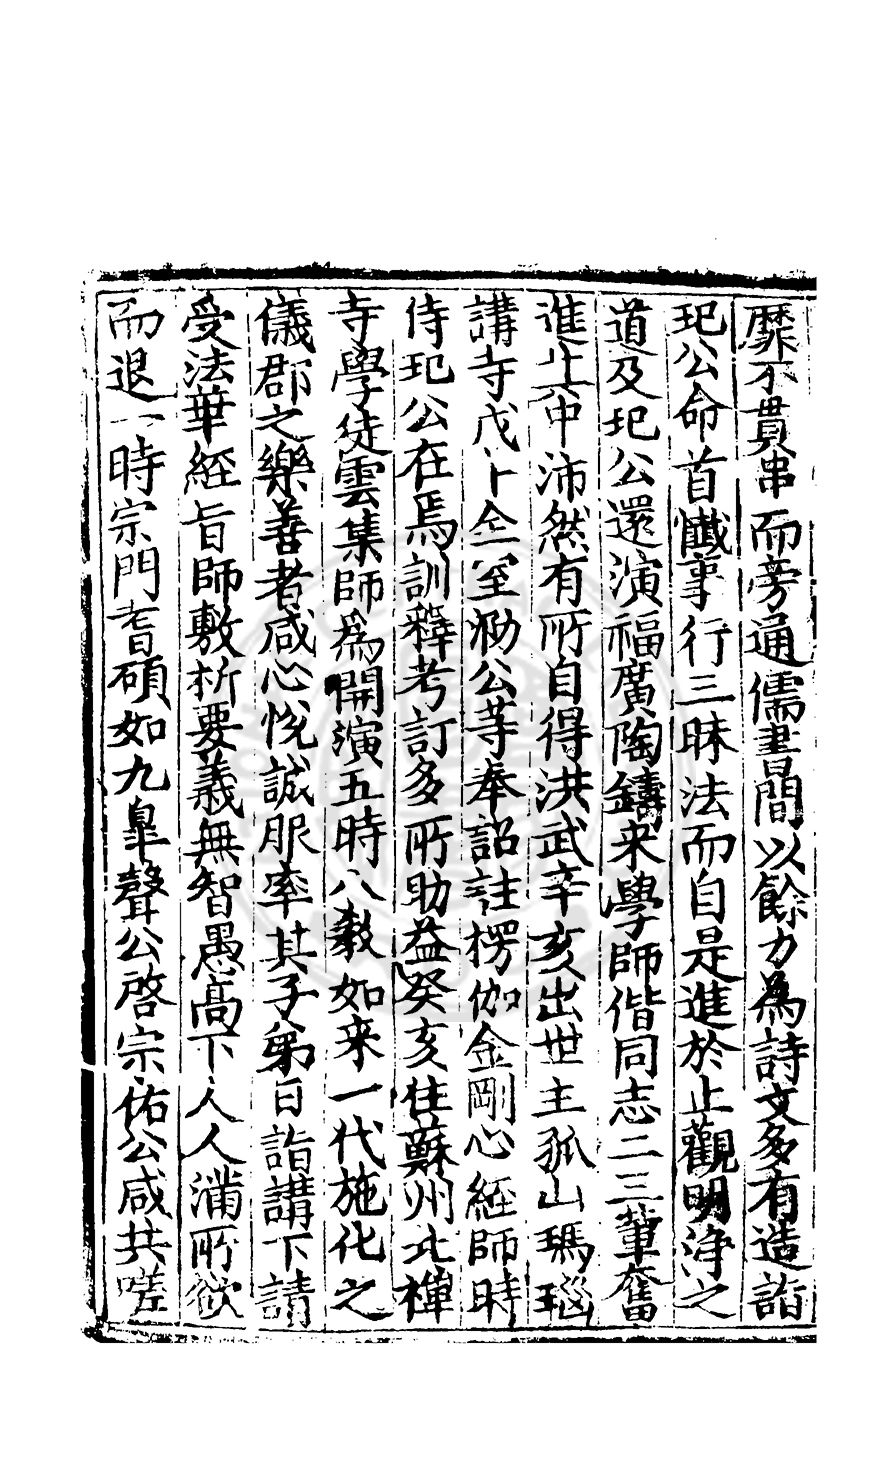 靡不貫串而旁通儒書間以餘力為詩文多有造詣
玘公命首懺事行三昧法而自是進於止觀明淨之
道及玘公還演福廣陶鑄来學師偕同志二三軰奮
進止中沛然有所自得洪武辛亥出世主孤山瑪瑙
講寺戊午仝室泐公䓁奉詔註楞伽金剛心經師時
侍玘公在焉訓釋考訂多所助益癸亥住蘇州北禪
寺學徒雲集師為開演五時八教如来一代施化之
儀郡之樂善者咸心恱誠服率其子弟日詣講下請
受法華經旨師敷析要義無智愚髙下人人滿所欲
而退一時宗門耆碩如九臯聲公啓宗佑公咸共嗟